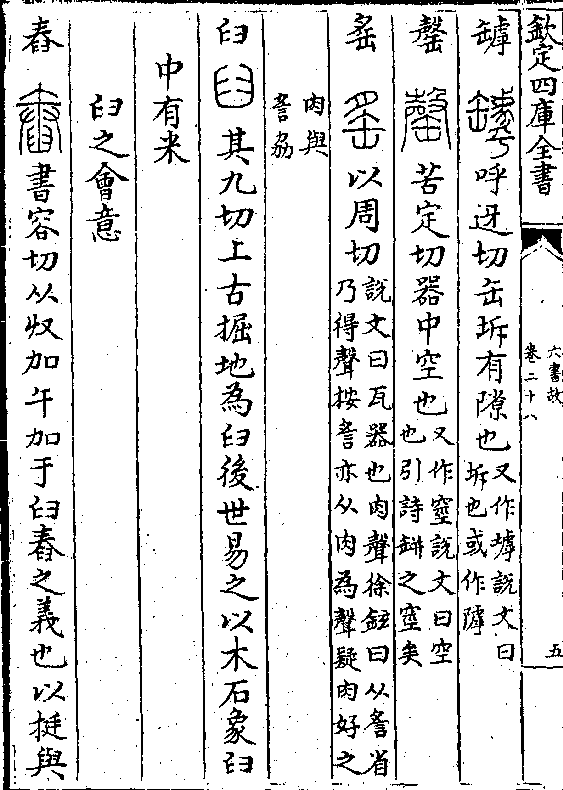 欽定四庫全書
六書故
卷二十八
五
罅 呼迓切缶坼有隙也又作㙤說文曰
坼也或作𨻶
罄 苦定切器中空也又作窒說文曰空
也引詩缾之窒矣
䍃 以周切說文曰瓦器也肉聲徐鉉曰从䚻省
乃得聲按䚻亦从肉為聲疑肉好之
肉與
䚻劦
臼 其九切上古掘地為臼後世易之以木石象臼
中有米
臼之會意
舂 書容切从収加午加于臼舂之義也以挺與